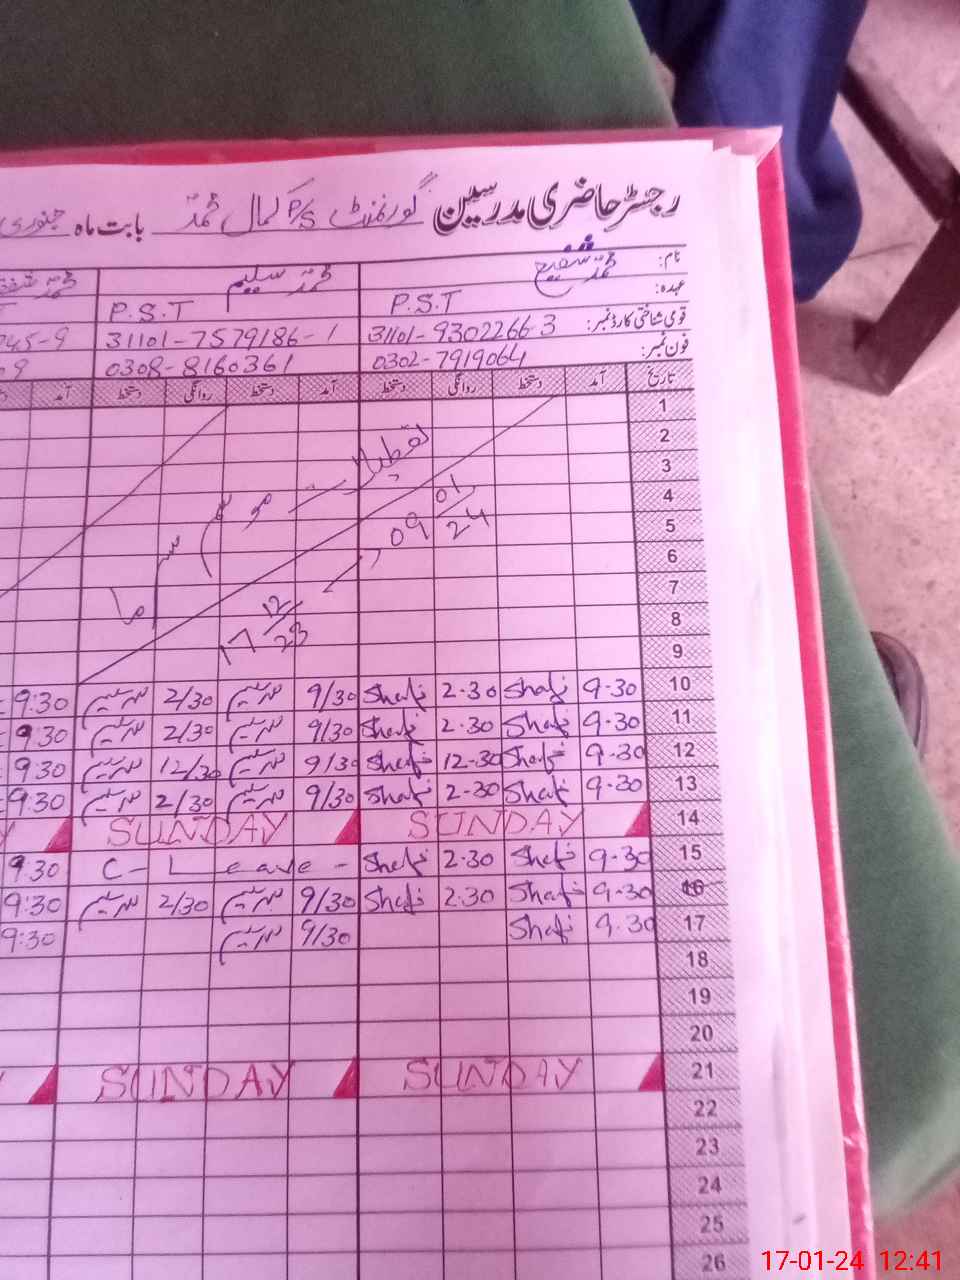 رجسٹر حاضری مدرسین گورنمنٹ P/S کمال محمد بابت ماہ جنوری
نام: محمد شفیع محمد سلیم محمد
عہدہ: P.S.T P.S.T
قومی شناختی کارڈ نمبر: 31101-9302266-3 31101-7579186-1 45-9
فون نمبر: 0302-7919064 0308-8160361
تاریخ آمد دستخط روانگی دستخط آمد دستخط روانگی دستخط آمد
1
2
3
4
5
6
7
8
9
تعطیلات موسم سرما
17 12/23 09 01/24
10 9-30 Shafi 2-30 Shafi 9/30 2/30 9:30
11 9-30 Shafi 2-30 Shafi 9/30 2/30 9:30
12 9-30 Shafi 12-30 Shafi 9/30 12/30 9:30
13 9-30 Shafi 2-30 Shafi 9/30 2/30 9:30
14 SUNDAY SUNDAY
15 9-30 Shafi 2-30 Shafi C- Leave - 9:30
16 9-30 Shafi 2-30 Shafi 9/30 2/30 9:30
17 9-30 Shafi 9/30 9:30
18
19
20
21 SUNDAY SUNDAY
22
23
24
25
26
17-01-24 12:41